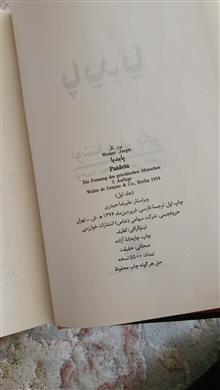 ورنر یگر
Werner Jaeger
پایدیا
Paideia
Die Formung des griechischen Menschen
3. Auflage
Walter de Gruyter & Co., Berlin 1954
(جلد اول)
ویراستار: علیرضا حیدری
چاپ اول ترجمهٔ فارسی: فروردین‌ماه ۱۳۷۶ ه‍. ش. - تهران
حروفچینی: شرکت سهامی (خاص) انتشارات خوارزمی
لیتوگرافی: لطیف
چاپ: چاپخانهٔ آزاده
صحافی: حقیقت
تعداد: ۵۵۰۰ نسخه
حق هرگونه چاپ محفوظ